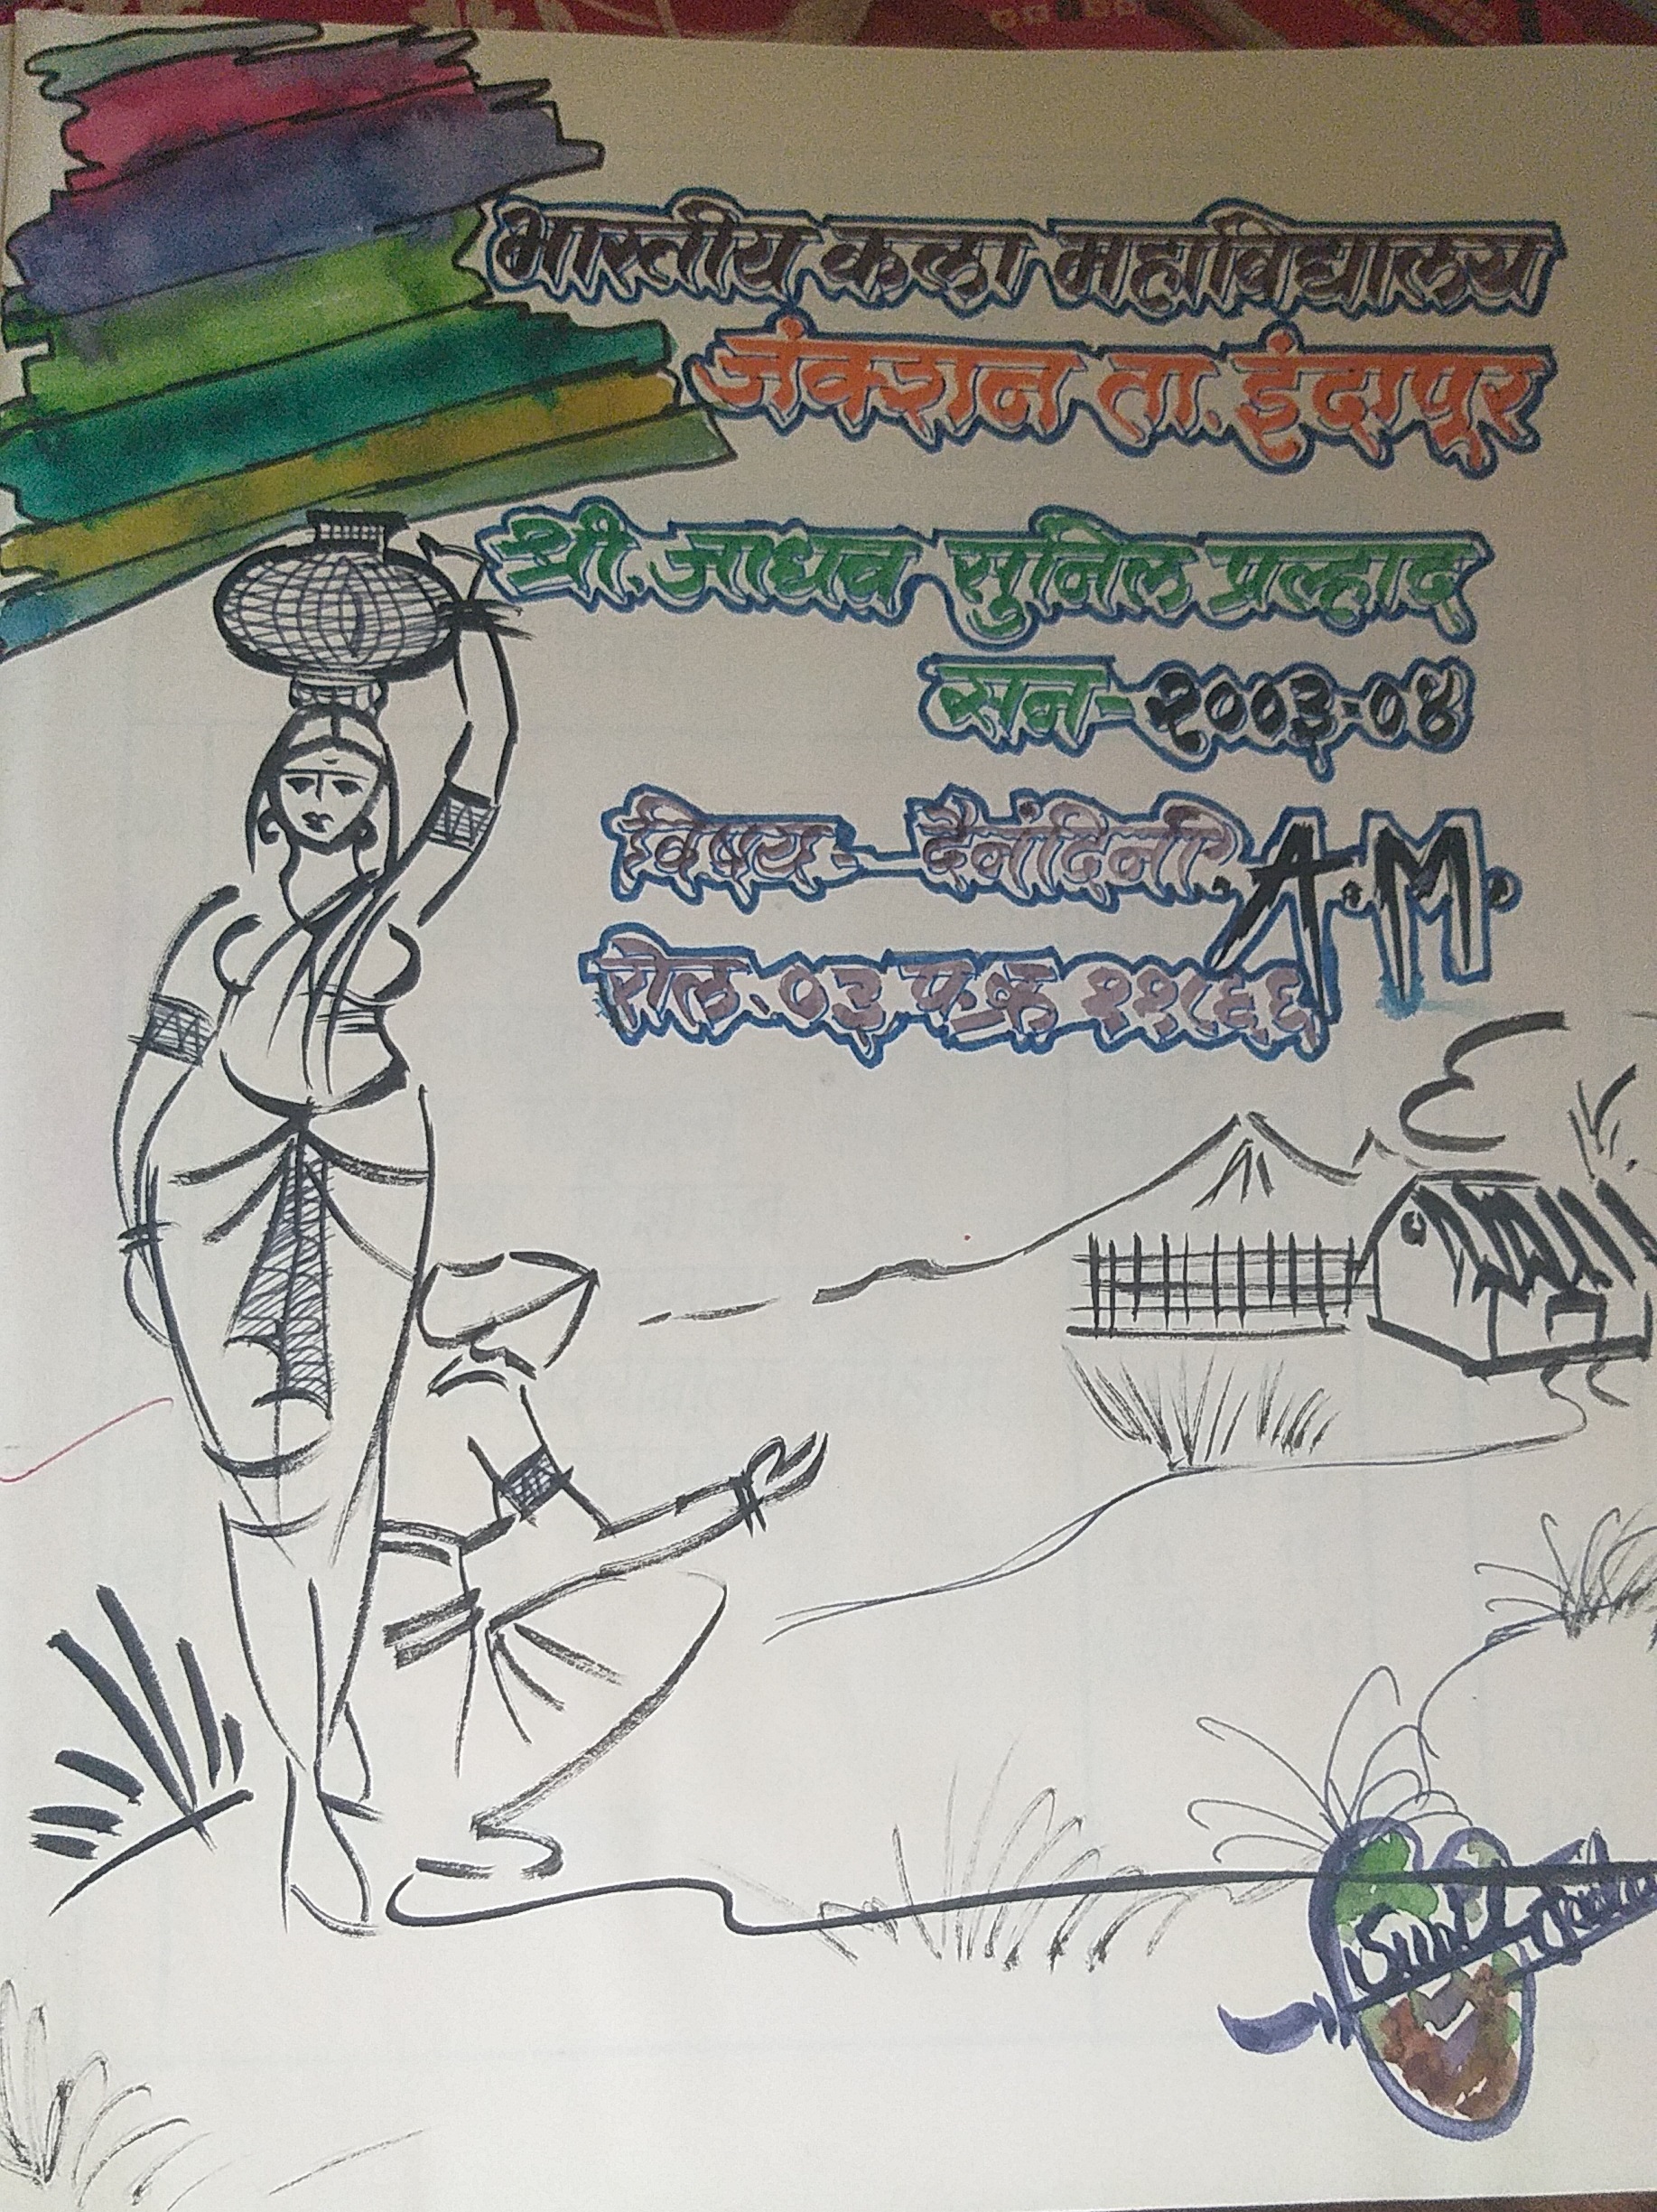 भारतीय कला महाविद्यालय
जंक्शन ता. इंदापूर
श्री. जाधव सुनिल प्रल्हाद
सन-२००३-०४
विषय:- दैनंदिनी. A.M.
रोल. ०३ प.क्र
Sunil